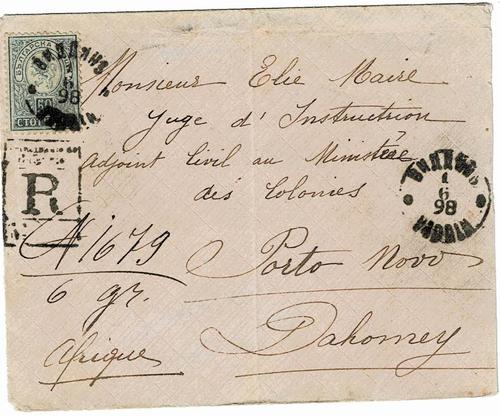 БЪЛГАРСКА
50
СТОТ
ВИДИНЪ
98
Monsieur Elie Maire
Juge d'Instruction
adjoint Civil au Ministère
des Colonies
R
N 1679
6 gr.
Porto Novo
Dahomey
Afrique
ВИДИНЪ
1
6
98